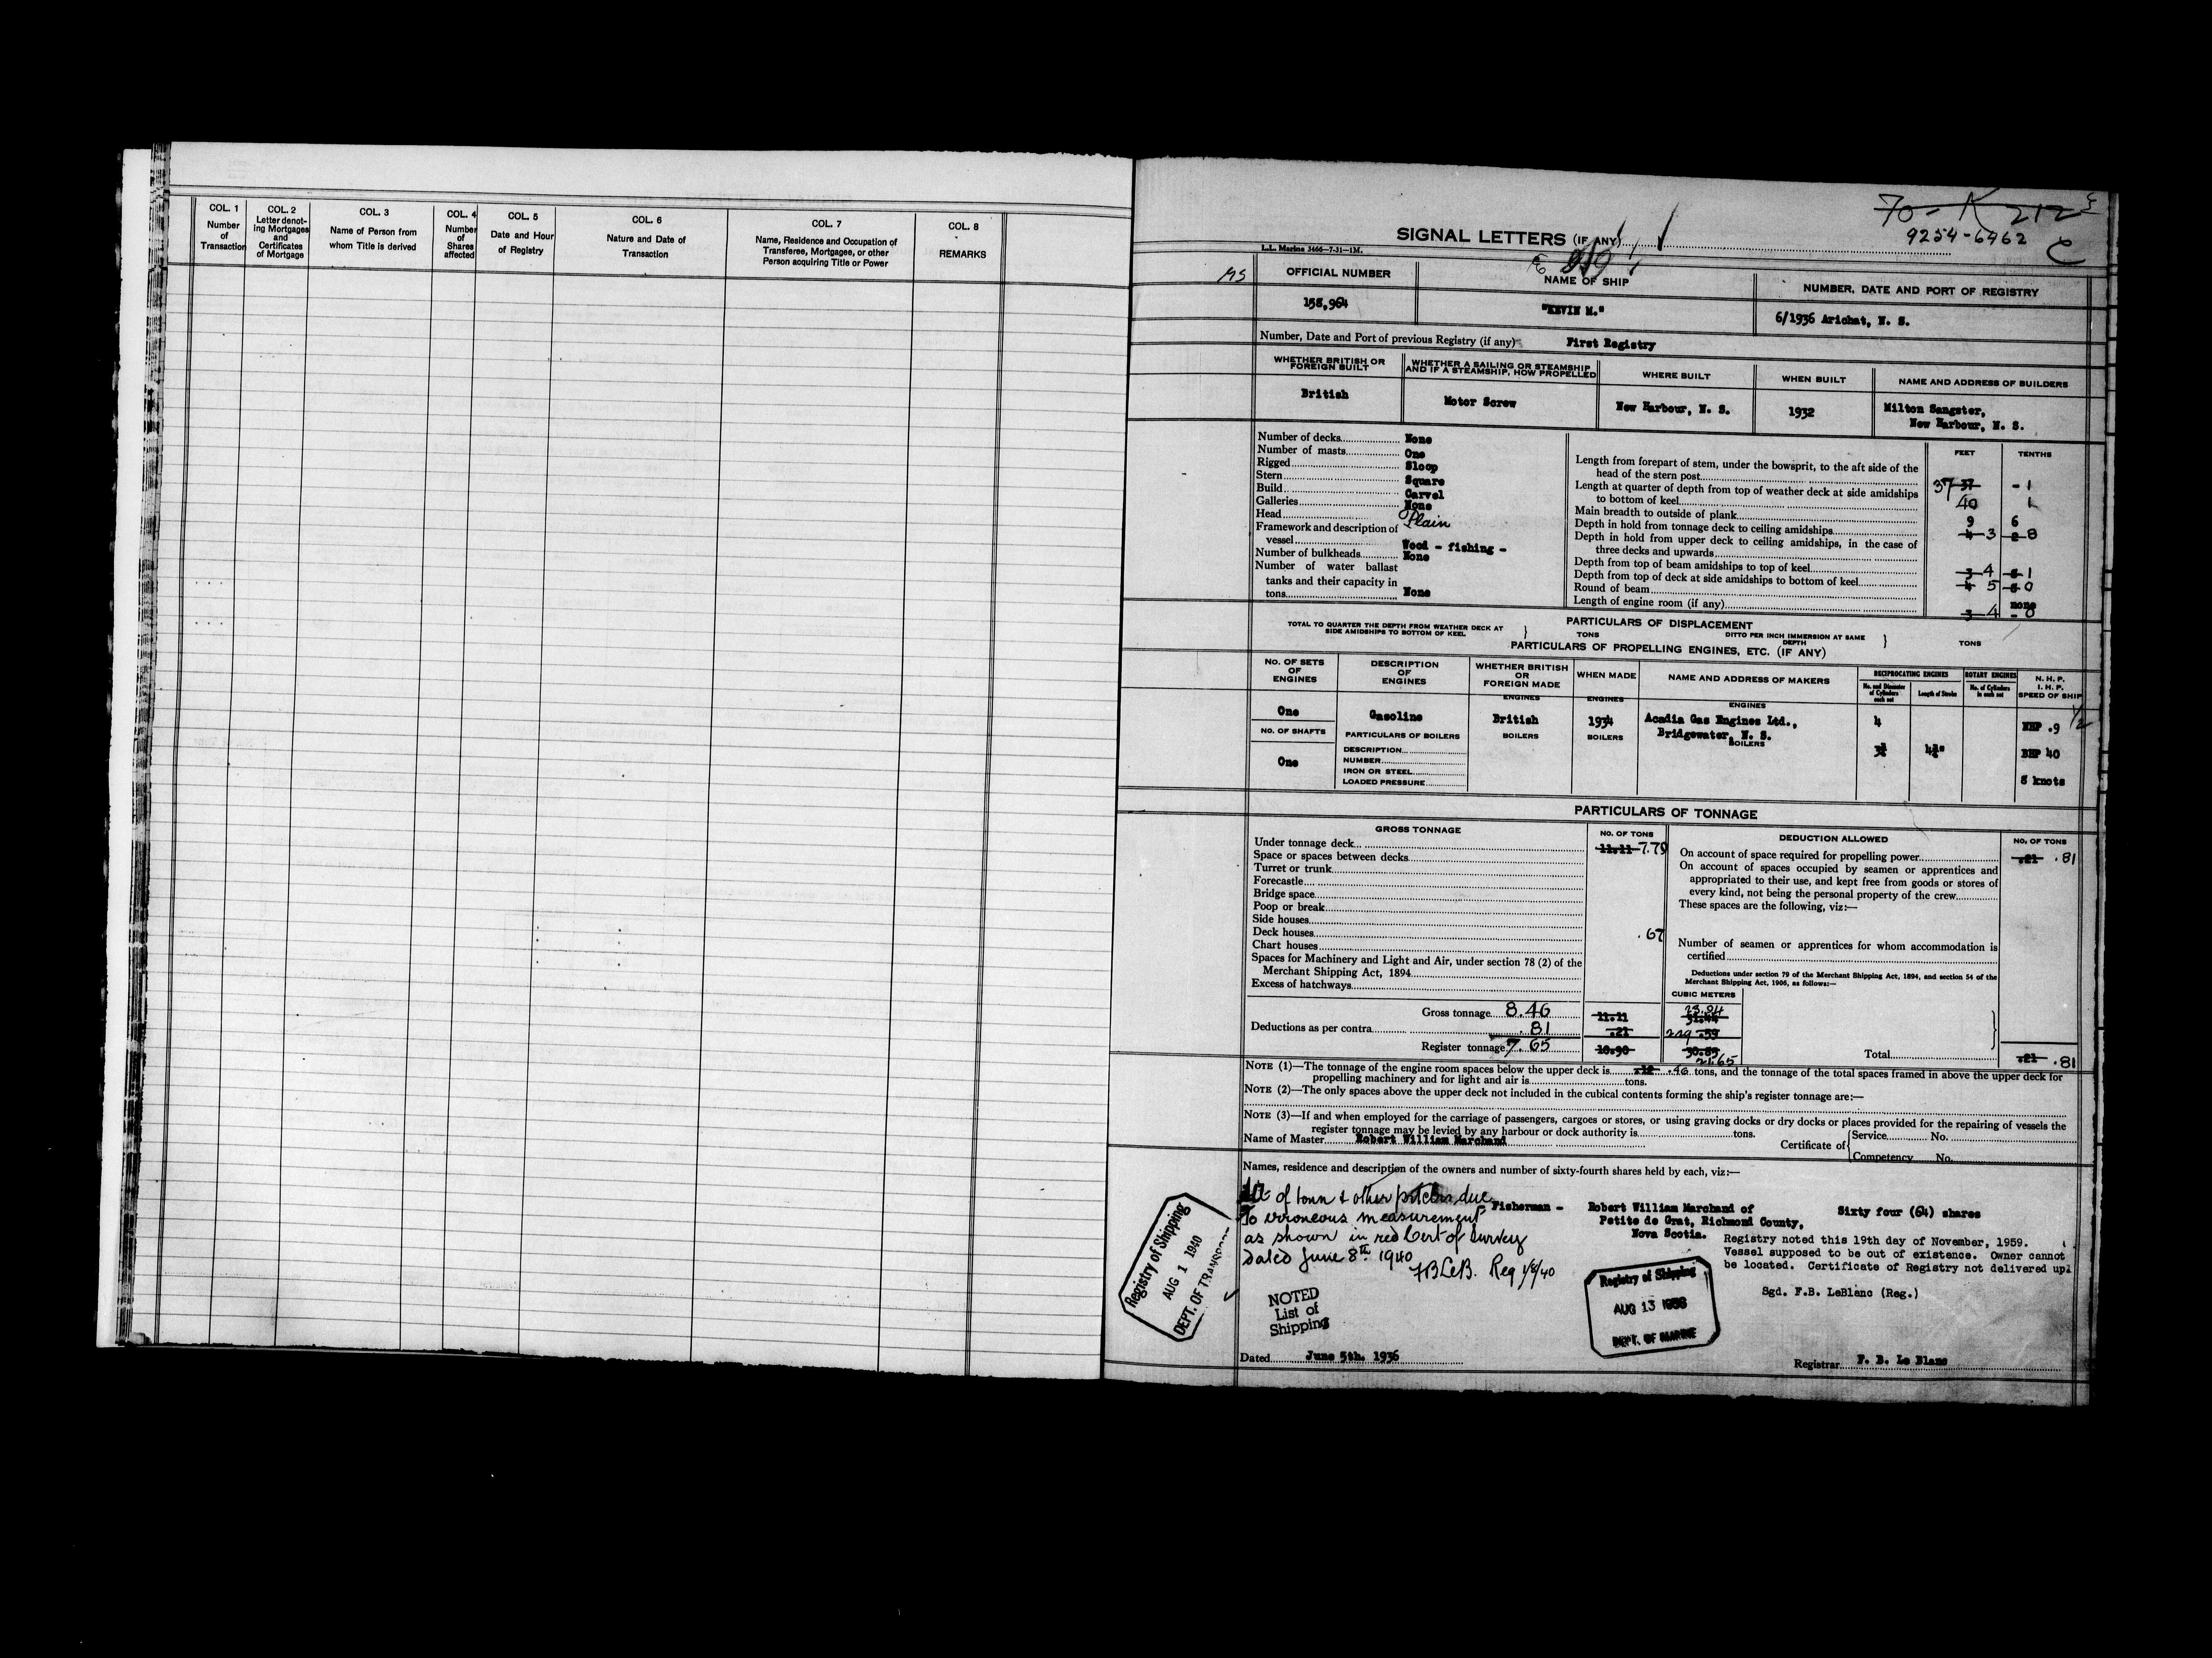 COL. 1
Number
of
Transaction
COL. 2
Letter denot-
ing Mortgages
and
Certificates
of Mortgage
COL. 3
Name of Person from
whom Title is derived
COL. 4
Number
of
Shares
affected
COL. 5
Date and Hour
of Registry
COL. 6
Nature and Date of
Transaction
COL. 7
Name, Residence and Occupation of
Transferee, Mortgagee, or other
Person acquiring Title or Power
COL. 8
REMARKS
70 - K 212
9254-6462
SIGNAL LETTERS (IF ANY)
L.L. Marine 3466—7-31—1M.
MS
OFFICIAL NUMBER
158,964
NAME OF SHIP
"KEVIN M."
NUMBER, DATE AND PORT OF REGISTRY
6/1936 Arichat, N. S.
Number, Date and Port of previous Registry (if any) First Registry
WHETHER BRITISH OR
FOREIGN BUILT
British
WHETHER A SAILING OR STEAMSHIP
AND IF A STEAMSHIP, HOW PROPELLED
Motor Screw
WHERE BUILT
New Harbour, N. S.
WHEN BUILT
1932
NAME AND ADDRESS OF BUILDERS
Milton Sangster,
New Harbour, N. S.
Number of decks None
Number of masts One
Rigged Sloop
Stern Square
Build Carvel
Galleries None
Head Plain
Framework and description of
vessel Wood - fishing -
Number of bulkheads None
Number of water ballast
tanks and their capacity in
tons None
FEET TENTHS
Length from forepart of stem, under the bowsprit, to the aft side of the
head of the stern post 37 37 - 1
Length at quarter of depth from top of weather deck at side amidships
to bottom of keel 40 1
Main breadth to outside of plank 9 6
Depth in hold from tonnage deck to ceiling amidships 4 3 2 8
Depth in hold from upper deck to ceiling amidships, in the case of
three decks and upwards
Depth from top of beam amidships to top of keel 3 4 1
Depth from top of deck at side amidships to bottom of keel 4 5 0
Round of beam none
Length of engine room (if any) 3 4 - 0
PARTICULARS OF DISPLACEMENT
TOTAL TO QUARTER THE DEPTH FROM WEATHER DECK AT
SIDE AMIDSHIPS TO BOTTOM OF KEEL } TONS
DITTO PER INCH IMMERSION AT SAME
DEPTH } TONS
PARTICULARS OF PROPELLING ENGINES, ETC. (IF ANY)
NO. OF SETS
OF
ENGINES
One
NO. OF SHAFTS
One
DESCRIPTION
OF
ENGINES
Gasoline
PARTICULARS OF BOILERS
DESCRIPTION
NUMBER
IRON OR STEEL
LOADED PRESSURE
WHETHER BRITISH
OR
FOREIGN MADE
ENGINES
British
BOILERS
WHEN MADE
ENGINES
1934
BOILERS
NAME AND ADDRESS OF MAKERS
ENGINES
Acadia Gas Engines Ltd.,
Bridgewater, N. S.
BOILERS
RECIPROCATING ENGINES
No. and Diameter
of Cylinders
each set
Length of Stroke
4
ROTARY ENGINES
No. of Cylinders
in each set
N. H. P.
I. H. P.
SPEED OF SHIP
NHP .9 1/2
BHP 40
8 knots
PARTICULARS OF TONNAGE
GROSS TONNAGE
NO. OF TONS
Under tonnage deck 11.11 7.79
Space or spaces between decks
Turret or trunk
Forecastle
Bridge space
Poop or break
Side houses
Deck houses .67
Chart houses
Spaces for Machinery and Light and Air, under section 78 (2) of the
Merchant Shipping Act, 1894
Excess of hatchways
Gross tonnage 8.46 11.11
Deductions as per contra .81 .21
Register tonnage 7.65 10.90
DEDUCTION ALLOWED
NO. OF TONS
On account of space required for propelling power .21 .81
On account of spaces occupied by seamen or apprentices and
appropriated to their use, and kept free from goods or stores of
every kind, not being the personal property of the crew
These spaces are the following, viz:—
Number of seamen or apprentices for whom accommodation is
certified
Deductions under section 79 of the Merchant Shipping Act, 1894, and section 54 of the
Merchant Shipping Act, 1906, as follows:—
CUBIC METERS
23.94
31.44
2.29 .59
30.85
21.65
Total .21 .81
NOTE (1)—The tonnage of the engine room spaces below the upper deck is .12 .46 tons, and the tonnage of the total spaces framed in above the upper deck for
propelling machinery and for light and air is tons.
NOTE (2)—The only spaces above the upper deck not included in the cubical contents forming the ship's register tonnage are:—
NOTE (3)—If and when employed for the carriage of passengers, cargoes or stores, or using graving docks or dry docks or places provided for the repairing of vessels the
register tonnage may be levied by any harbour or dock authority is tons.
Name of Master Robert William Marchand
Certificate of { Service No.
Competency No.
Names, residence and description of the owners and number of sixty-fourth shares held by each, viz:—
of tonn & other due
To erroneous measurement
as shown in red Cert of Survey
dated June 8th 1940
FBLeB. Reg 1/8/40
Fisherman -
Robert William Marchand of
Petite de Grat, Richmond County,
Nova Scotia.
Sixty four (64) shares
Registry noted this 19th day of November, 1959.
Vessel supposed to be out of existence. Owner cannot
be located. Certificate of Registry not delivered up.
Sgd. F.B. LeBlanc (Reg.)
Registry of Shipping
AUG 1 1940
DEPT. OF TRANSPORT
NOTED
List of
Shipping
Registry of Shipping
AUG 13 1936
DEPT. OF MARINE
Dated June 5th. 1936
Registrar F. B. Le Blanc